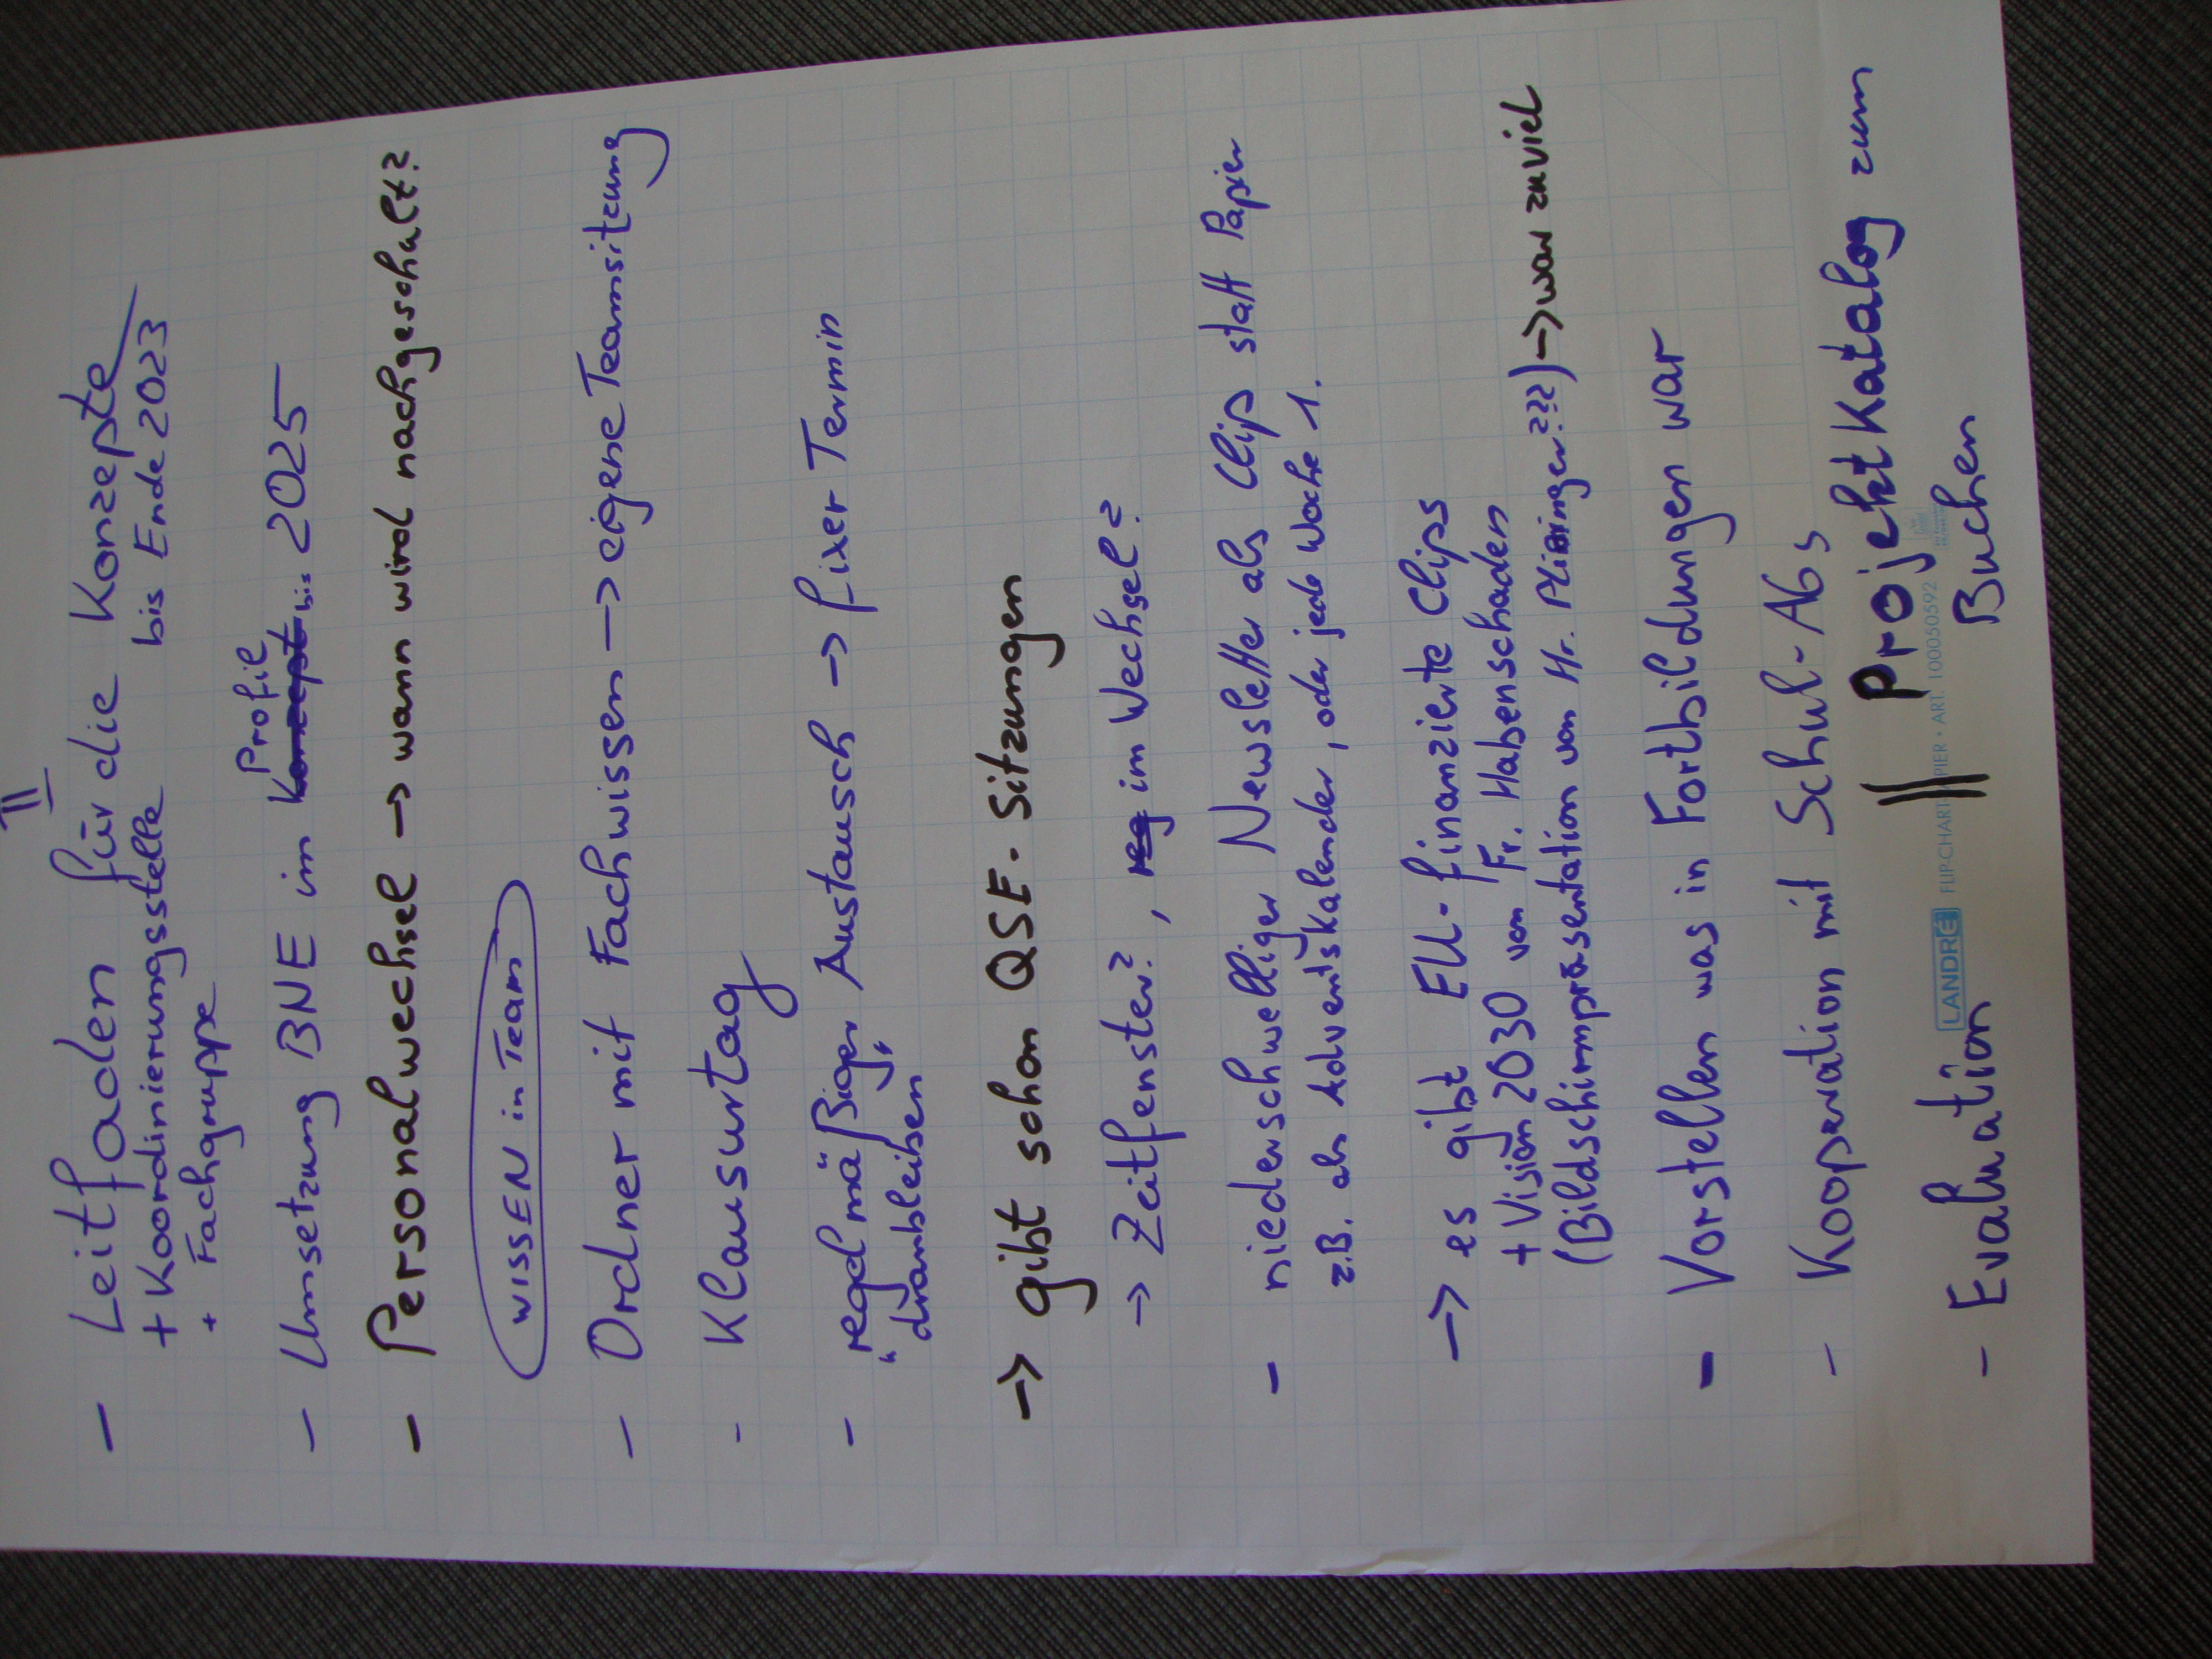 - Leitfaden für die Konzepte
+ Koordinierungsstelle bis Ende 2023
+ Fachgruppe
Profil
- Umsetzung BNE im Konzept bis 2025
- Personalwechsel → wann wird nachgeschalt?
WISSEN in Team
- Ordner mit Fachwissen → eigene Teamsitzung
- Klausurtag
- regelmäßiger Austausch → fixer Termin
"dranbleiben"
→ gibt schon QSE-Sitzungen
→ Zeitfenster?, reg im Wechsel?
- niederschwelliger Newsletter als Clip statt Papier
z.B. als Adventskalender, oder jede Woche 1.
→ es gibt EU-finanzierte Clips
+ Vision 2030 von Fr. Habenschaden
(Bildschirmpräsentation von Hr. Plininger???) → war zuviel
- Vorstellen was in Fortbildungen war
- Kooperation mit Schul-AGs
- Evaluation || Projektkatalog zum
Buchen
LANDRÉ FLIP-CHART-PAPIER • ART. 100050592